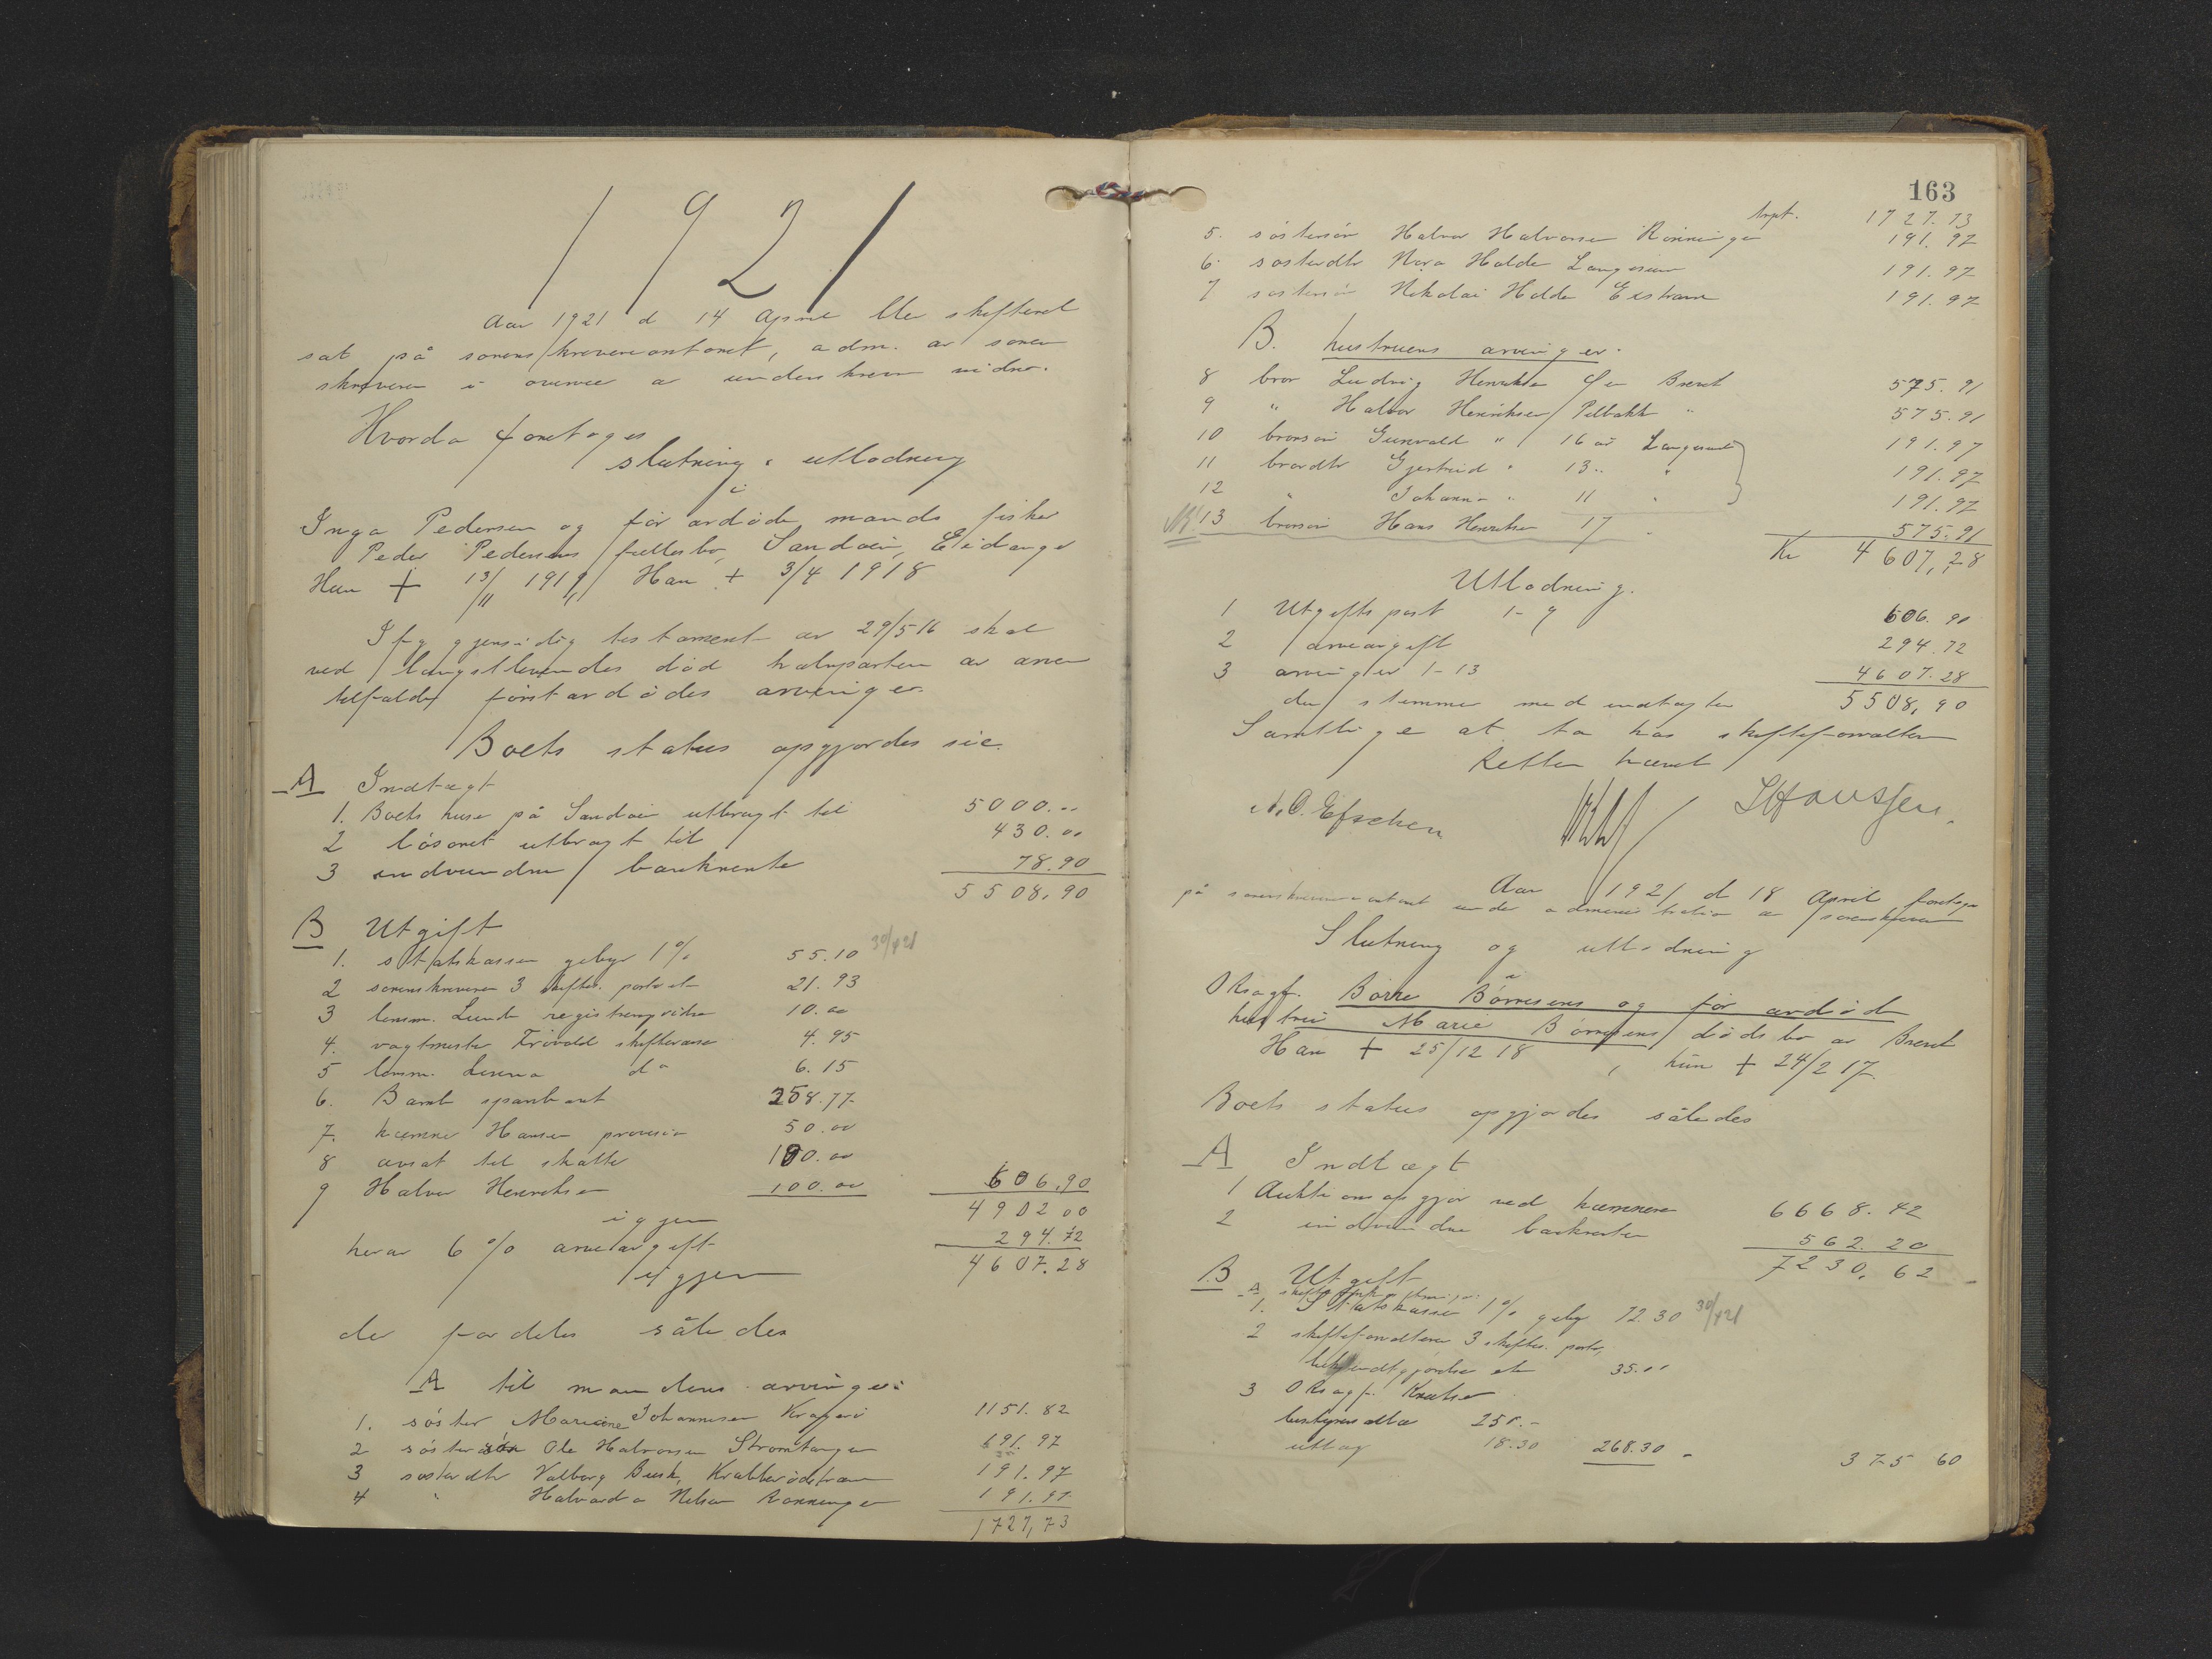 1921
Aar 1921 d 14 April ble skifteret
sat på sorenskriverkontoret, adm. av soren
skriveren i overvær av underskrevne vidner.
Hvorda foretages
slutning & utlodning
i
Inga Pedersen og før avdøde mands fisker
Peder Pedersens fællesbo, Sandøen, Eidanger
Hun + 13/11 1919, Han + 3/4 1918
Ifg gjensidig testament av 29/5 16 skal
ved længstlevendes død halvparten av arven
tilfalde førstavdødes arvinger.
Boets status opgjordes sie.
A Indtægt
1. Boets huse på Sandøen utbragt til 5000.00
2 løsøret utbragt til 430.00
3 indvundne bankrente 78.90
5508,90
B Utgift
1. statskassen gebyr 1% 55.10 30/4 21
2 sorenskriveren 3 skifters. porto etc 21.93
3 lensm. Lund registrering 10.00
4. vagtmester Trovald 4.95
5 lensm. do 6.15
6. Bamble sparebank 258.77
7. kæmner Hansen provision 50.00
8 avsat til skatter 100.00
9 Halvor Henriksen 100.00 606,90
igjen 4902 00
herav 6% arveavgift 294.72
igjen 4607.28
der fordeles således
A til mandens arvinger:
1. søster Mariane Johannesen Kragerø 1151.82
2 søstersøn Ole Halvorsen Stromtangen 191.97
3 søsterdtr Valborg Busk, 191.97
4 " Halvarda Nilsen Rønningen 191.97
1727,73
163
trpt. 1727.73
5. søstersøn Halvor Halvorsen Rønningen 191.97
6. søsterdtr Nora Halde Langesund 191.97
7 søstersøn Nikolai Halde 191.97
B. hustruens arvinger.
8 bror Ludvig Henriksen Brevik 575.91
9 " Halvor Henriksen " 575.91
10 brorsøn Gunvald " 16 år Langesund 191.97
11 brordtr Gjertrud " 13 " " 191.97
12 " Johanna " 11 " 191.97
13 brorsøn Hans Henriksen 17 575.91
Kr 4607,28
Utlodning.
1 Utgiftspost 1-9 606.90
2 arveavgift 294.72
3 arvinger 1-13 4607.28
der stemmer med indtægten 5508,90
Samtlige at ta hos skifteforvalteren
Retten hævet
Aar 1921 d 18 April foretages
på sorenskriverkontoret under administration av sorenskriveren
Slutning og utlodning
i
Børre Børresens og før avdøde
hustru Marie Børresens dødsbo av Brevik
Han + 25/12 18, hun + 24/2 17.
Boets status opgjordes således
A Indtægt
1 Auktionsopgjør ved kæmneren 6668.42
2 indvundne bankrenter 562.20
7230,62
B Utgift
1. Statskassen 1% gebyr 72.30 30/4 21
2 skifteforvalteren 3 skifters. porto,
bekjendtgjørelse etc 35.00
3 Knutsen
250.-
utlæg 18.30 268.30 - 375 60